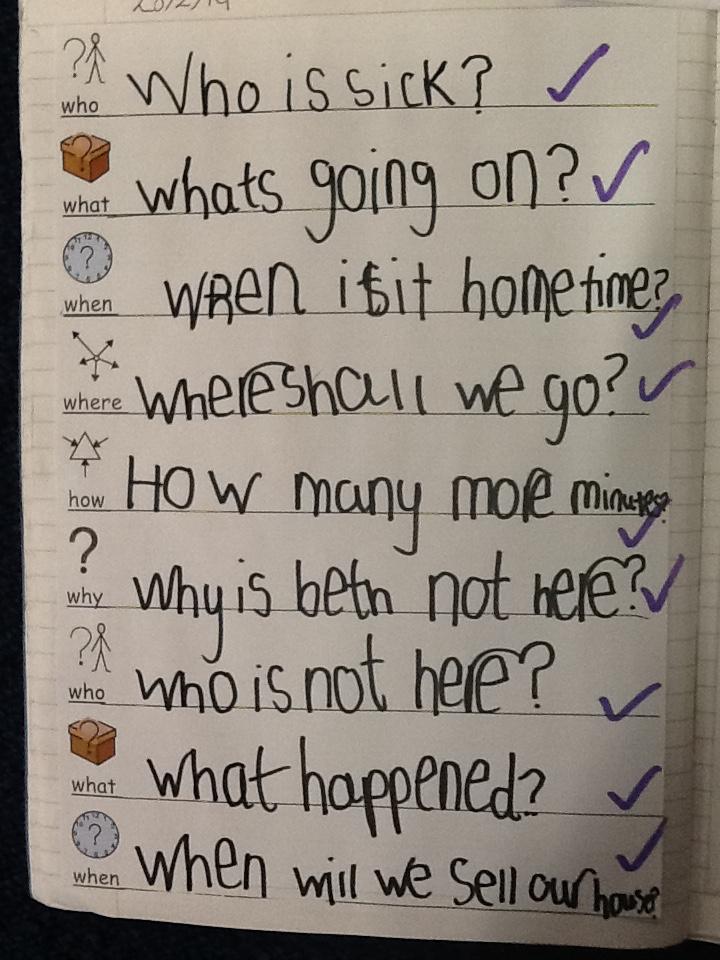 who Who is sick?
what whats going on?
when When is it home time?
where where shall we go?
how How many more minutes?
why why is beth not here?
who who is not here?
what what happened?
when when will we sell our house?